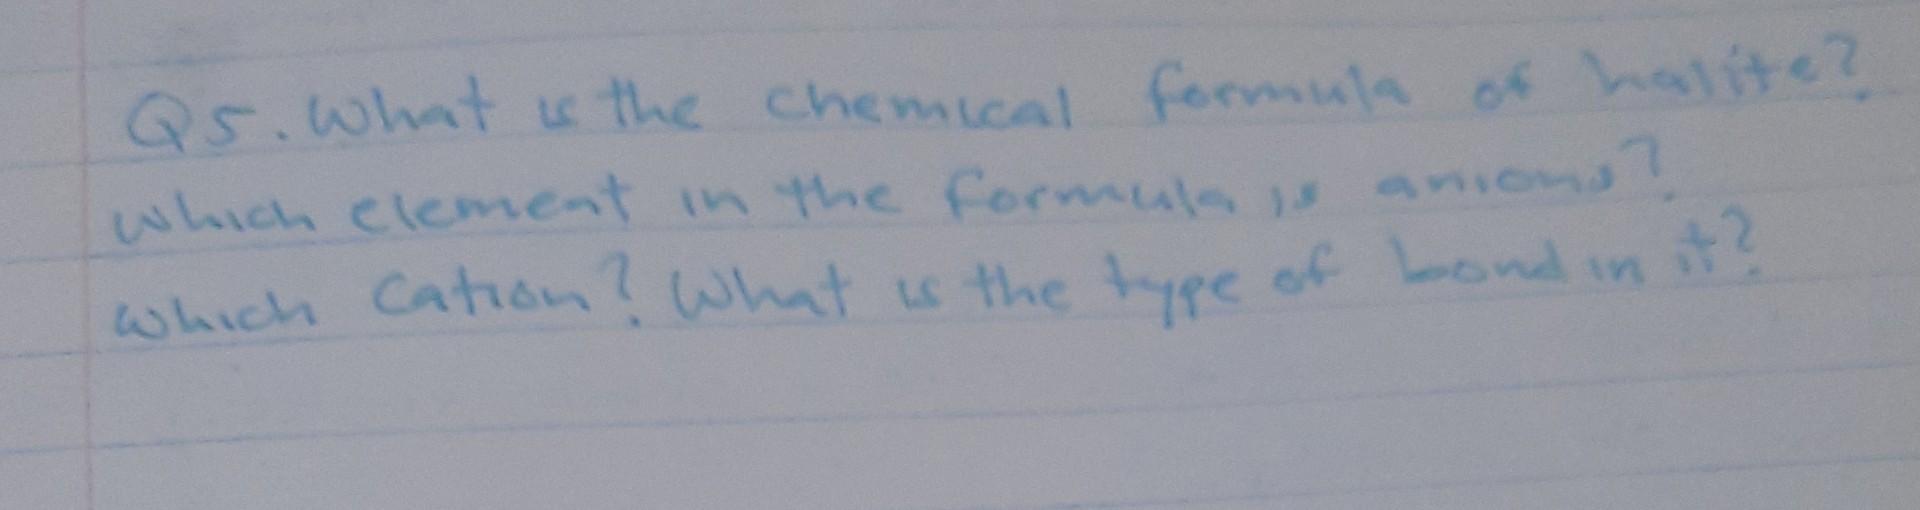 Q5. What is the chemical formula of halite?
which element in the formula is anions?
which cation? What is the type of bond in it?